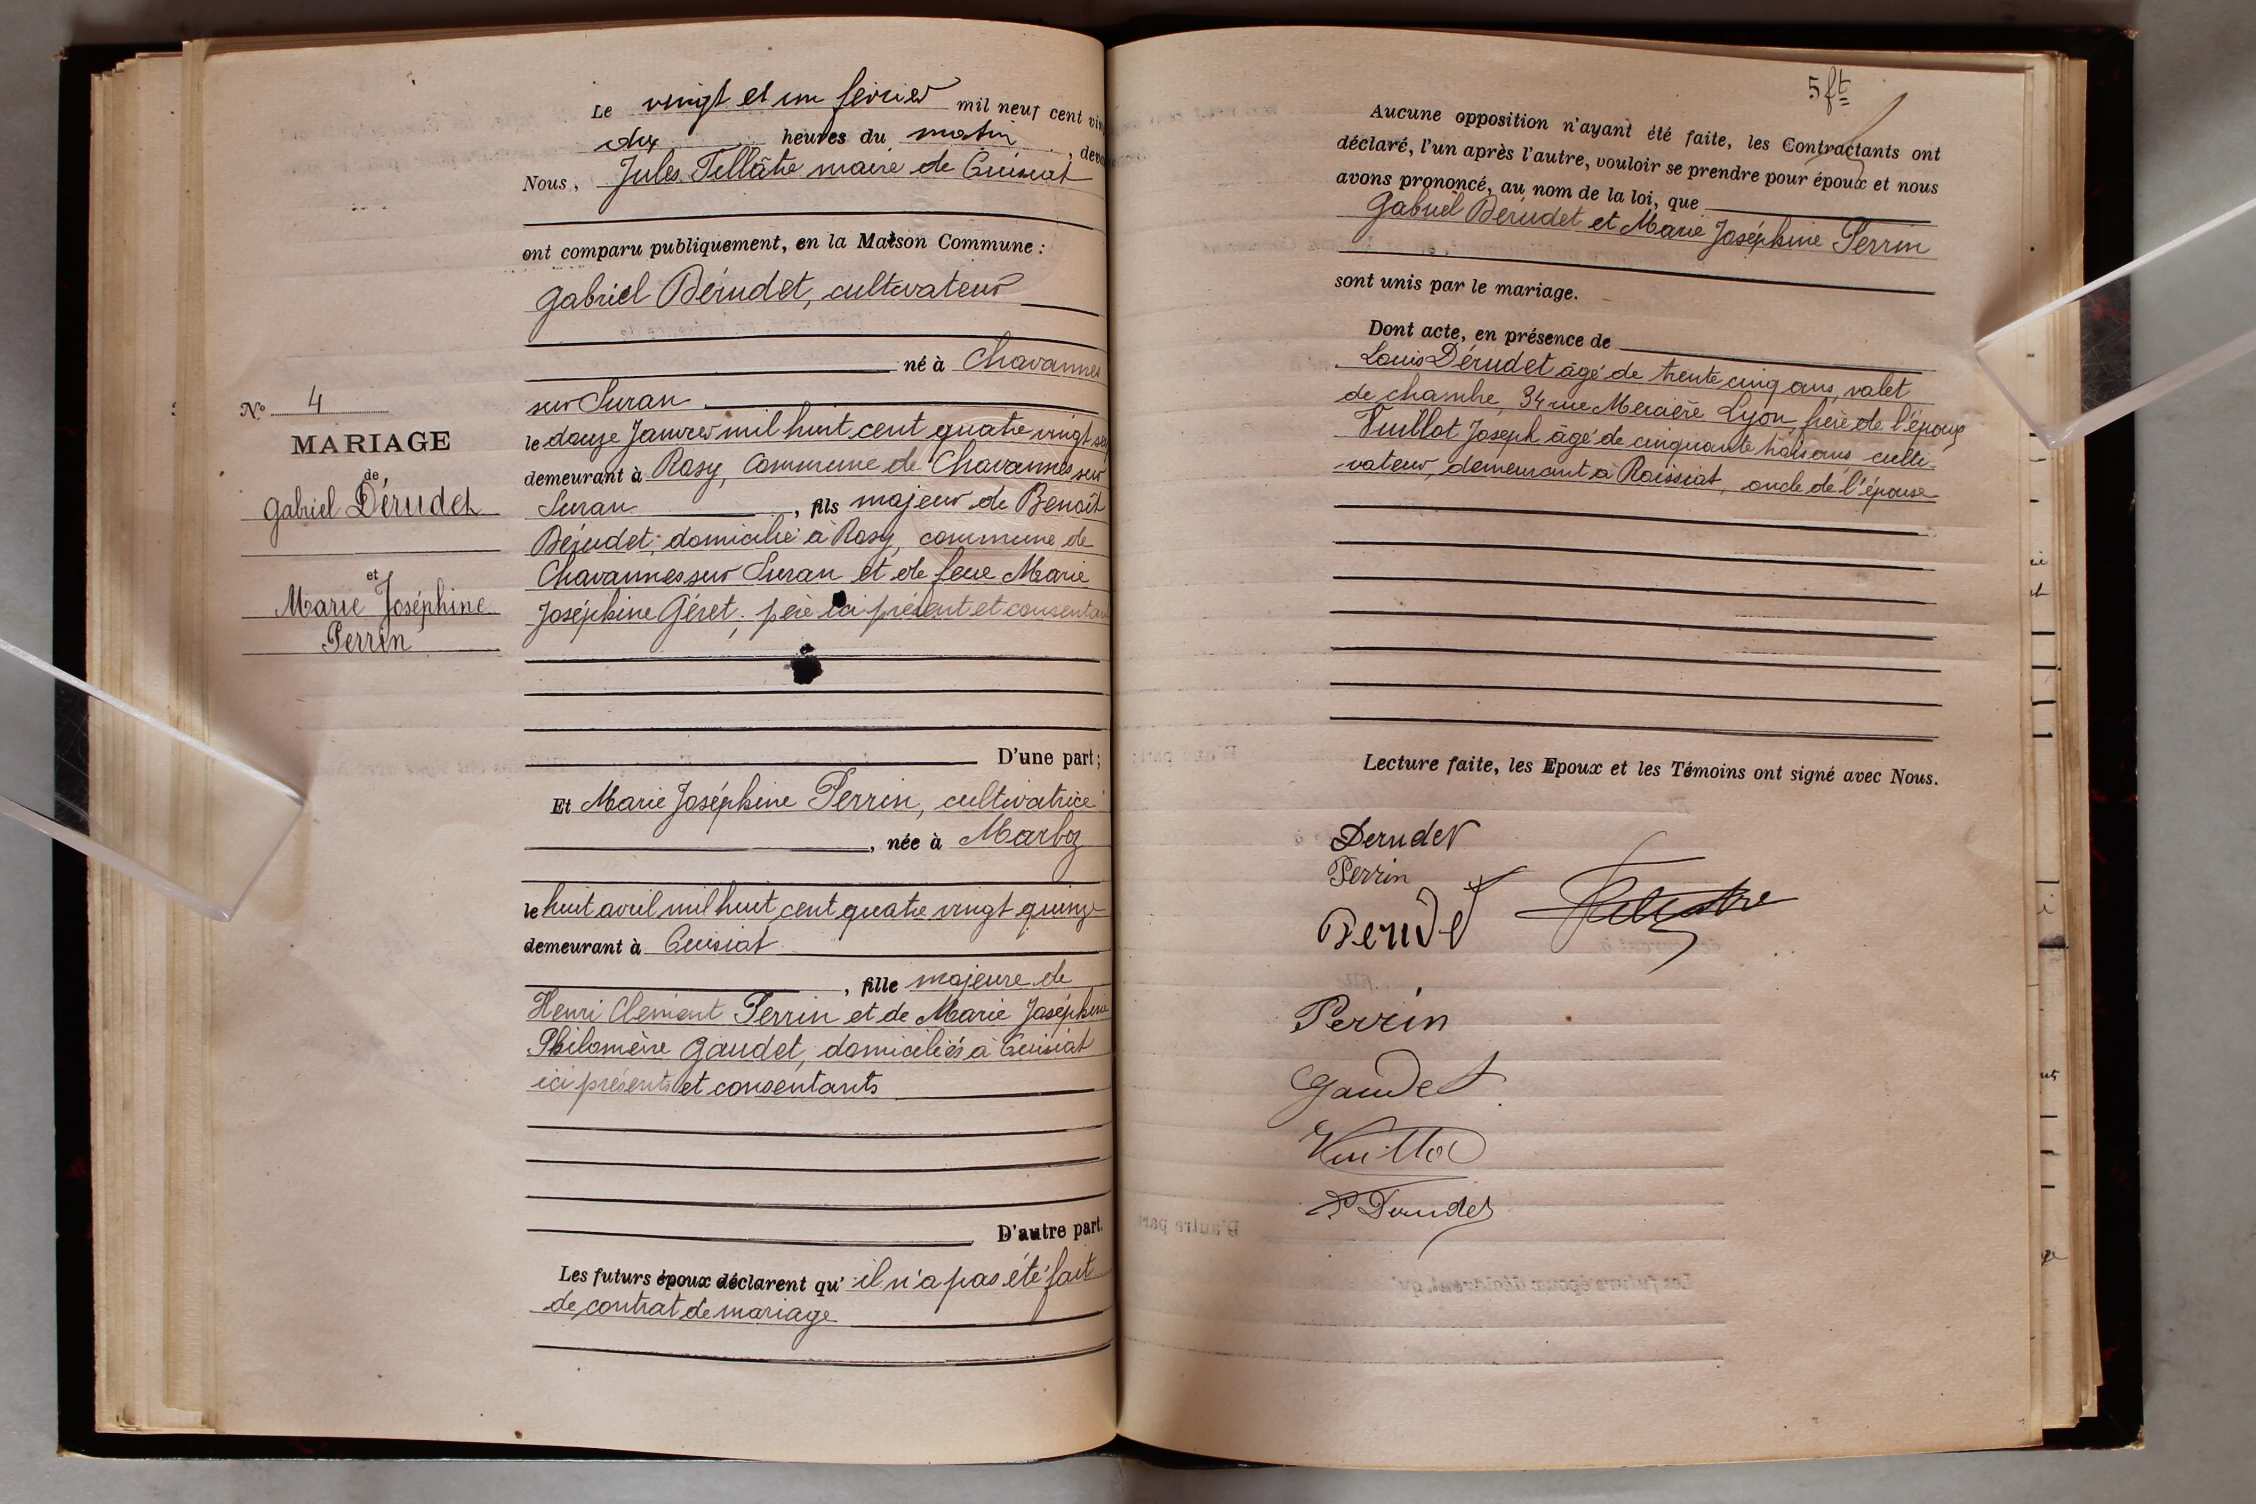 Le vingt et un février mil neuf cent vin
dix heures du matin, deva
Nous, Jules Tellâtre maire de Cuisiat
ont comparu publiquement, en la Maison Commune :
Gabriel Dérudet, cultivateur
né à Chavannes
sur Suran
le douze Janvier mil huit cent quatre vingt se
demeurant à Rosy, Commune de Chavannes sur
Suran, fils majeur de Benoît
Dérudet, domicilié à Rosy, commune de
Chavannes sur Suran et de feue Marie
Joséphine Géret; père ici présent et consentan
D'une part;
Et Marie Joséphine Perrin, cultivatrice
, née à Marboz
le huit avril mil huit cent quatre vingt quinze
demeurant à Cuisiat
, fille majeure de
Henri Clément Perrin et de Marie Joséphine
Philomène Gaudet, domiciliés à Cuisiat
ici présents et consentants
D'autre part.
Les futurs époux déclarent qu'il n'a pas été fait
de contrat de mariage
N° 4
MARIAGE
de
Gabriel Dérudet
et
Marie Joséphine
Perrin
5 ft
Aucune opposition n'ayant été faite, les Contractants ont
déclaré, l'un après l'autre, vouloir se prendre pour époux et nous
avons prononcé, au nom de la loi, que
Gabriel Dérudet et Marie Joséphine Perrin
sont unis par le mariage.
Dont acte, en présence de
Louis Dérudet âgé de trente cinq ans, valet
de chambre, 34 rue Mercière Lyon, frère de l'époux
Vuillot Joseph âgé de cinquante trois ans culti-
vateur, demeurant à Roissiat, oncle de l'épouse
Lecture faite, les Epoux et les Témoins ont signé avec Nous.
Derudet
Perrin
Derudet
Perrin
Gaudet
Vuillot
Derudet